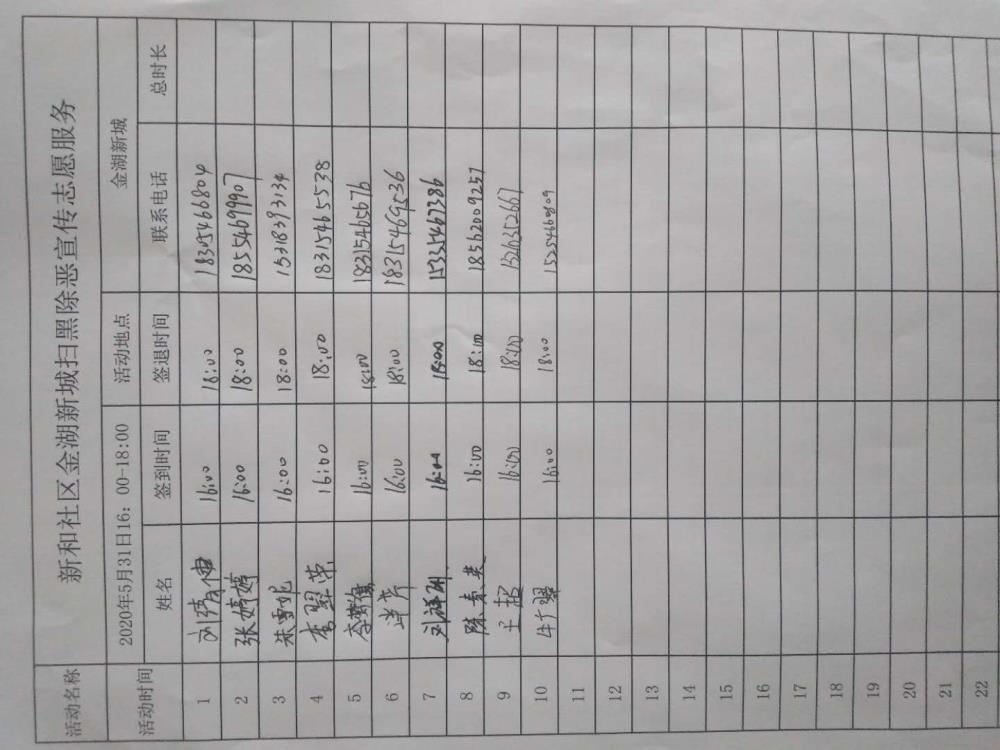 活动名称 新和社区金湖新城扫黑除恶宣传志愿服务
活动时间 2020年5月31日16：00-18:00 活动地点 金湖新城
姓名 签到时间 签退时间 联系电话 总时长
1 16:00 18:00 18305466804
2 张婷婷 16:00 18:00 18554699907
3 朱雪妮 16:00 18:00 15318393134
4 李翠荣 16:00 18:00 18315465538
5 16:00 18:00 18315465676
6 16:00 18:00 18315469536
7 16:00 18:00 15335467386
8 陈素英 16:00 18:00 18562009257
9 王超 16:00 18:00 13263526671
10 16:00 18:00 15254660809
11
12
13
14
15
16
17
18
19
20
21
22